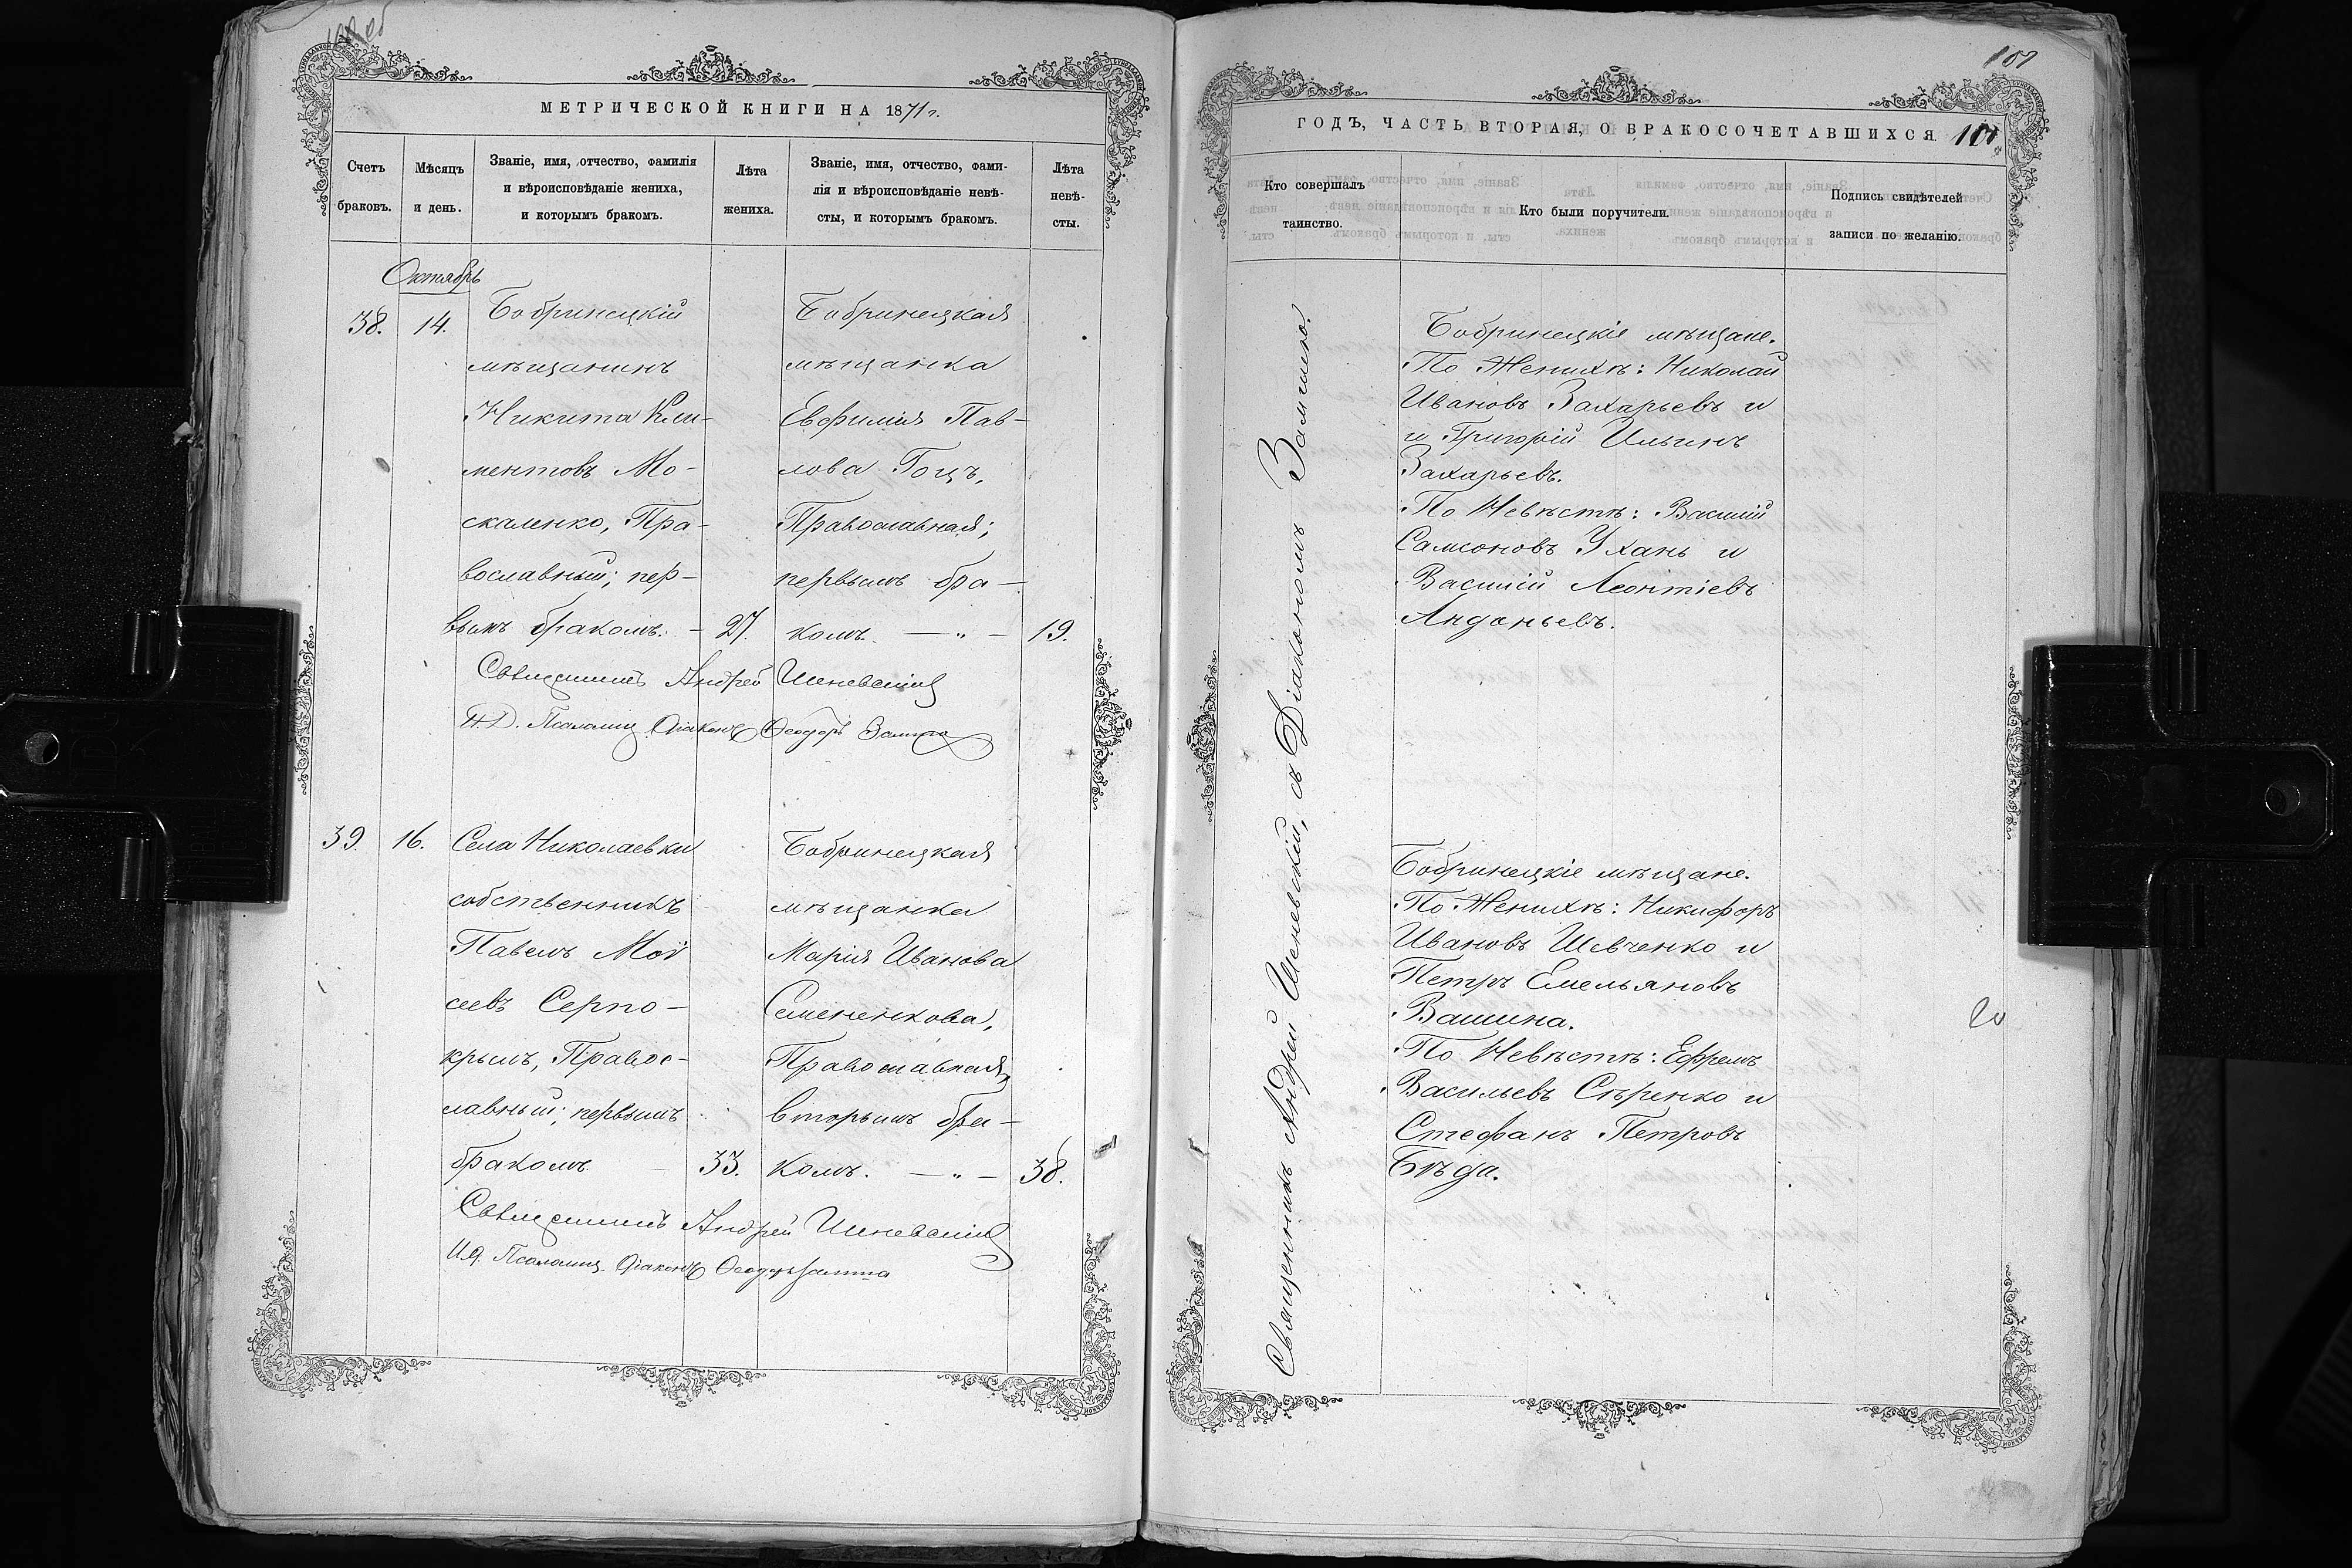 МЕТРИЧЕСКОЙ КНИГИ НА 1871 г.
Счетъ
браковъ.
Мѣсяцъ
и день.
Званіе, имя, отчество, фамилія
и вѣроисповѣданіе жениха,
и которымъ бракомъ.
Лѣта
жениха.
Званіе, имя, отчество, фами-
лія и вѣроисповѣданіе невѣ-
сты, и которымъ бракомъ.
Лѣта
невѣ-
сты.
Октябрь
38.
14.
Бобринецкій
мѣщанинъ
Никита Кли-
ментовъ Мо-
скаленко, Пра-
вославный; пер-
вымъ бракомъ. -
27.
Бобринецкая
мѣщанка
Евфимія Пав-
лова Гоцъ,
Православная;
первымъ бра-
комъ. — „ —
19.
Священникъ Андрей Шеневскій
И.Д. Псаломщ. Діаконъ Ѳеодоръ Замша
39.
16.
Села Николаевки
собственникъ
Павелъ Мои
сеевъ Серпо-
крылъ, Правос-
лавный; первымъ
бракомъ. -
33.
Бобринецкая
мѣщанка
Марія Иванова
Семененкова,
Православная,
вторымъ бра-
комъ. — „ —
38.
Священникъ Андрей Шеневскій
И.д. Псаломщ. Діаконъ Ѳеодоръ Замша
107
ГОДЪ, ЧАСТЬ ВТОРАЯ, О БРАКОСОЧЕТАВШИХСЯ
Кто совершалъ
таинство.
Кто были поручители.
Подпись свидѣтелей
записи по желанію.
Священникъ Андрей Шеневскій, съ Діакономъ Замшею.
Бобринецкіе мѣщане.
По Женихѣ: Николай
Ивановъ Захарьевъ и
и Григорій Ильинъ
Захарьевъ.
По Невѣстѣ: Василій
Самсоновъ Ухань и
Василій Леонтіевъ
Андоньевъ.
Бобринецкіе мѣщане.
По Женихѣ: Никифоръ
Ивановъ Шевченко и
Петръ Емельяновъ
Вашина.
По Невѣстѣ: Ефремъ
Васильевъ Сѣренко и
Стефанъ Петровъ
Бѣда.